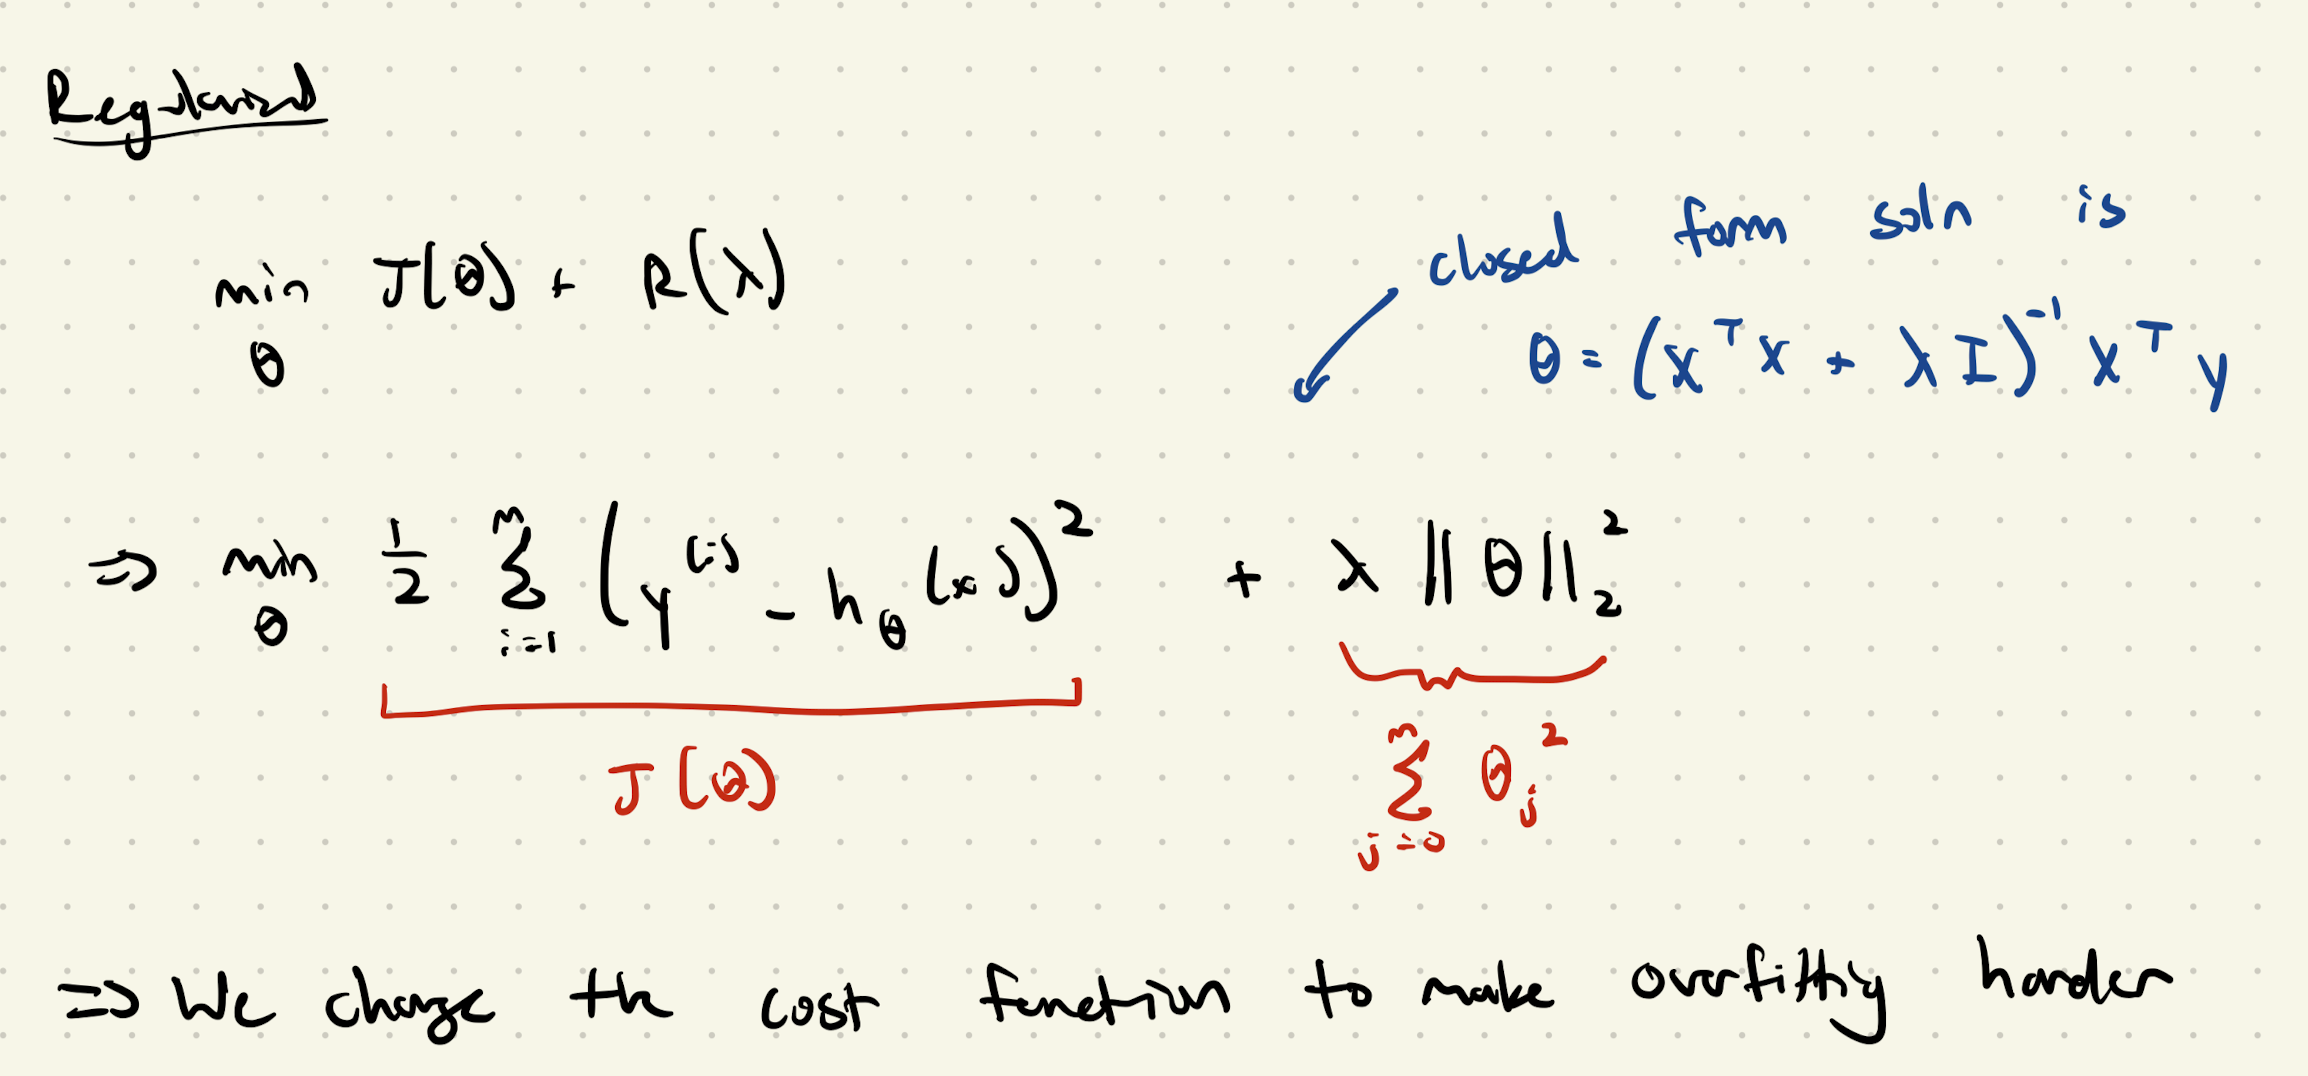 Regularized
min J(θ) + R(λ)
θ
closed form soln is
θ = (x^T x + λI)^-1 x^T y
⇒ min 1/2 Σ_{i=1}^{m} (y^(i) - h_θ(x))^2 + λ||θ||_2^2
θ
J(θ)
Σ_{j=0}^{n} θ_j^2
⇒ We change the cost function to make overfitting harder